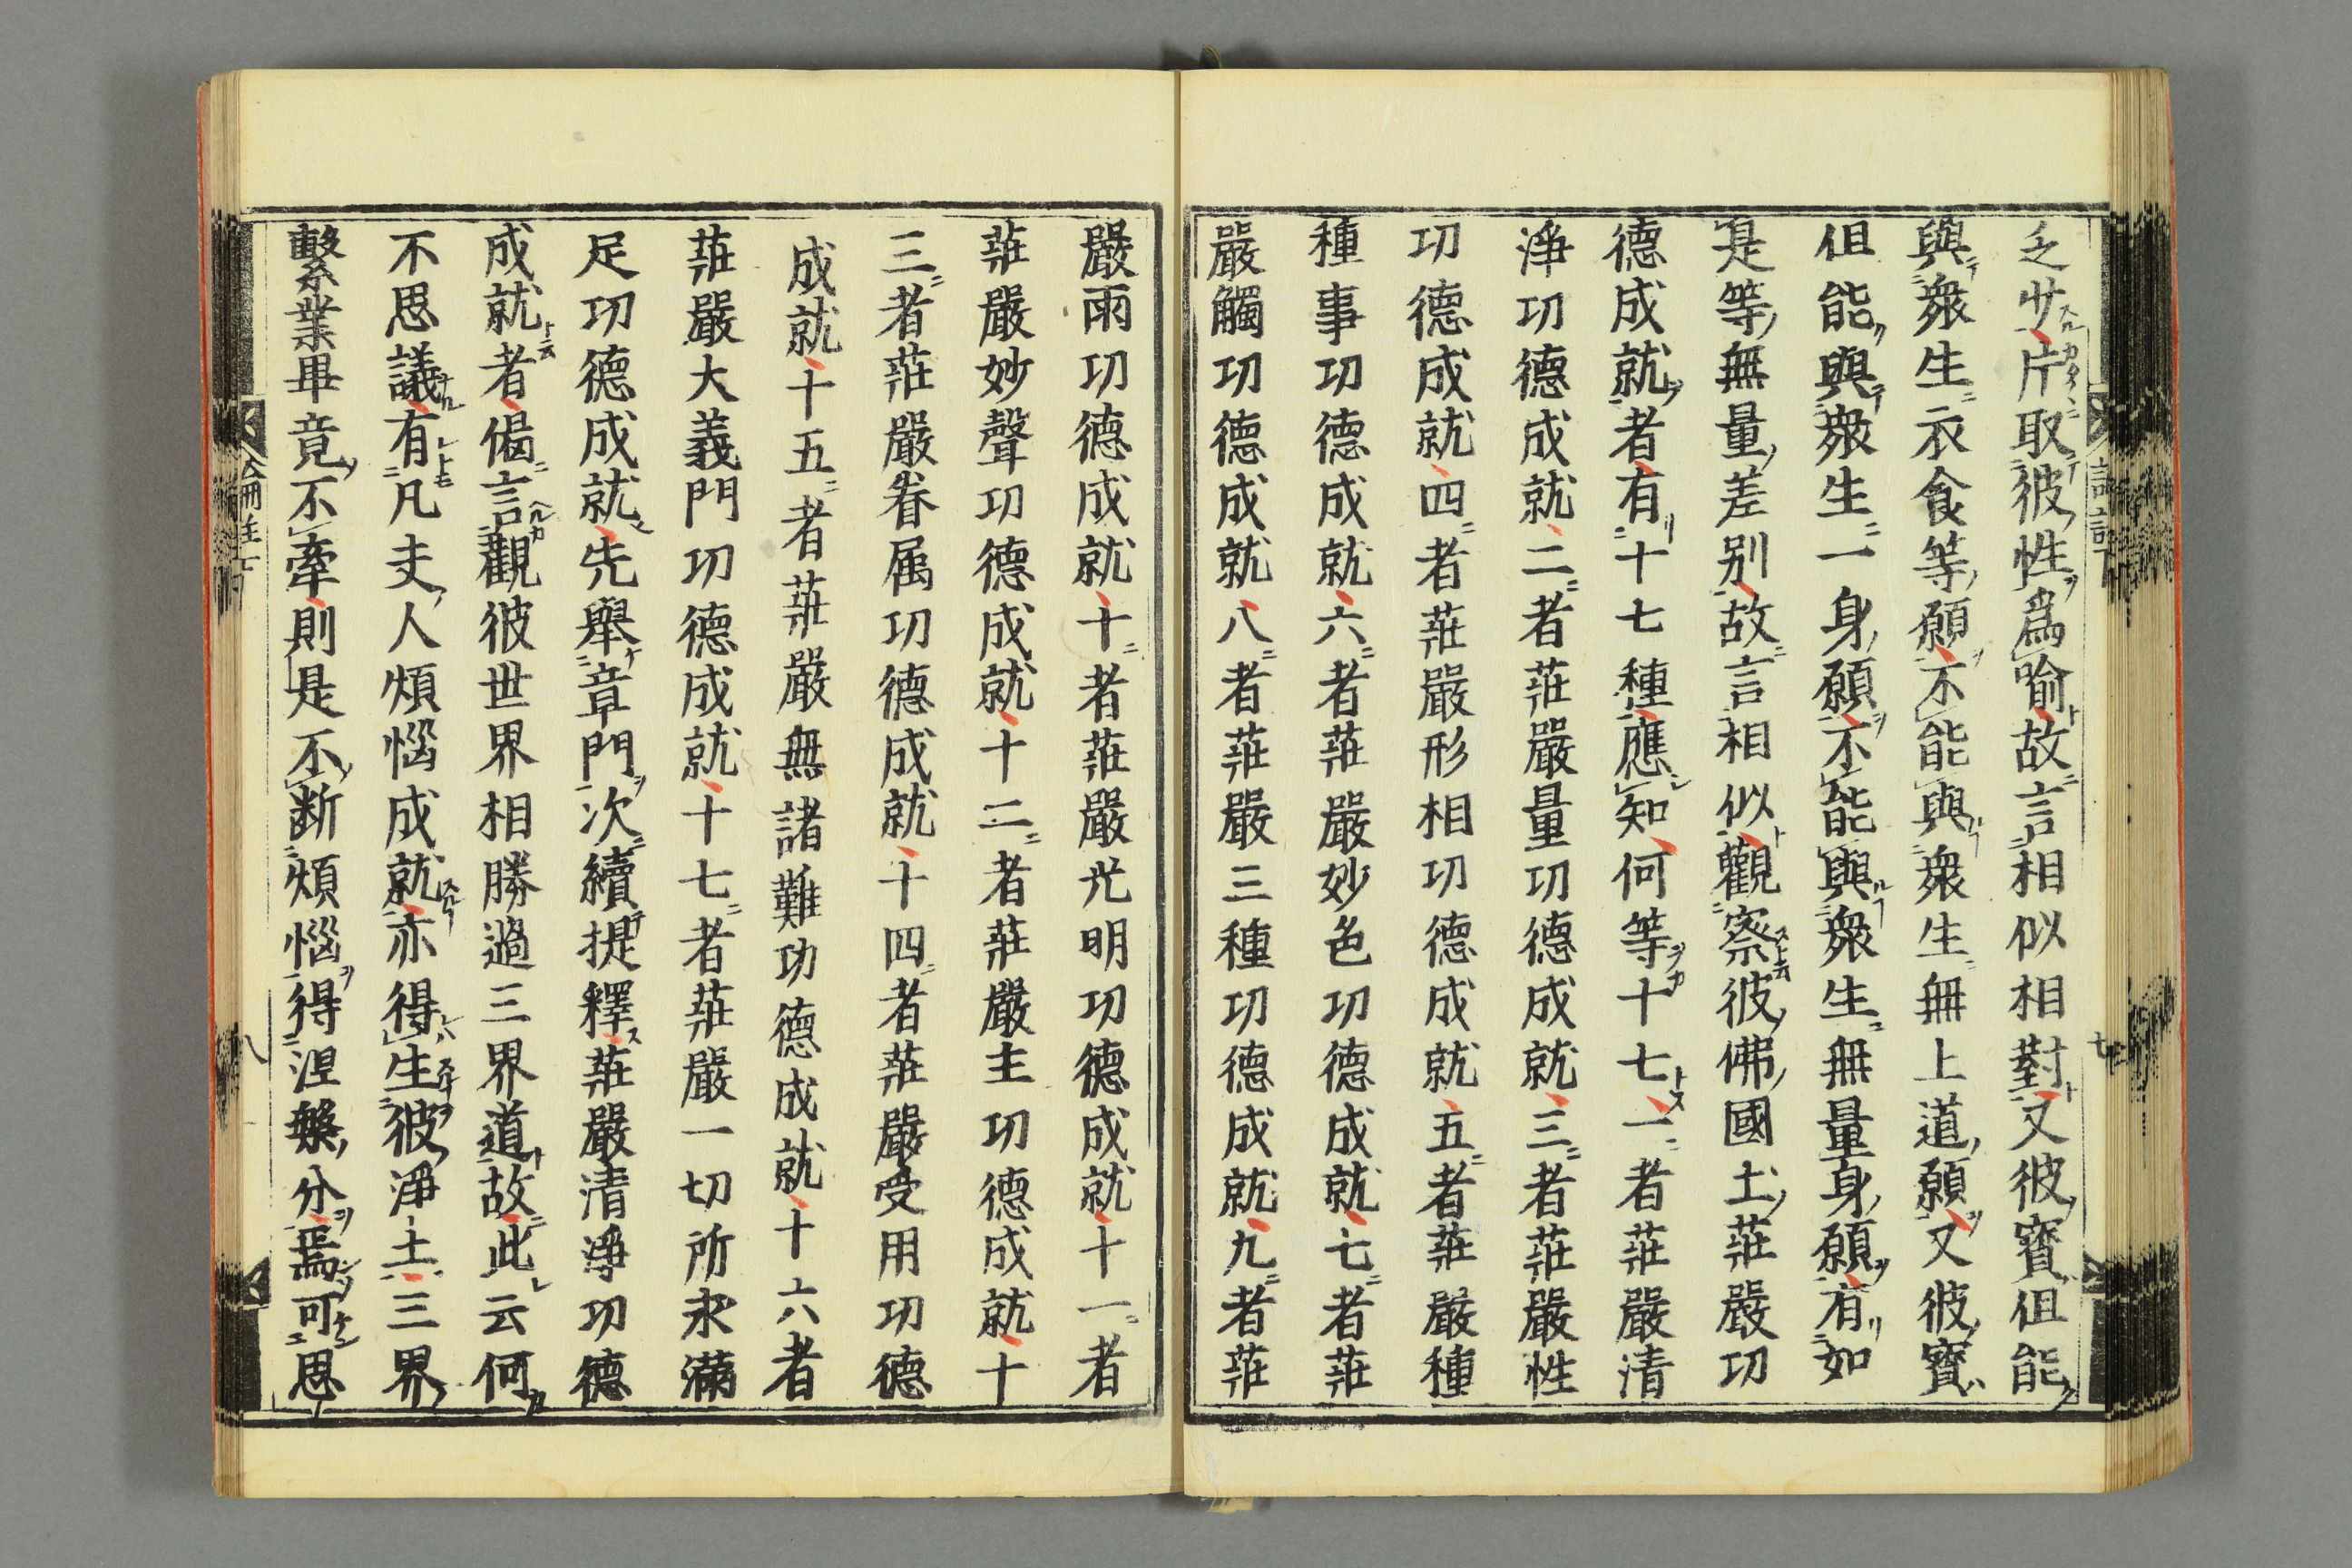 乏少片取彼性爲喻故言相似相對又彼寶但能
與衆生衣食等願不能與衆生無上道願又彼寶
但能與衆生一身願不能與衆生無量身願有如
是等無量差別故言相似觀察彼佛國土莊嚴功
德成就者有十七種應知何等十七一者莊嚴清
淨功德成就二者莊嚴量功德成就三者莊嚴性
功德成就四者莊嚴形相功德成就五者莊嚴種
種事功德成就六者莊嚴妙色功德成就七者莊
嚴觸功德成就八者莊嚴三種功德成就九者莊
嚴雨功德成就十者莊嚴光明功德成就十一者
莊嚴妙聲功德成就十二者莊嚴主功德成就十
三者莊嚴眷属功德成就十四者莊嚴受用功德
成就十五者莊嚴無諸難功德成就十六者
莊嚴大義門功德成就十七者莊嚴一切所求滿
足功德成就先舉章門次續提釋莊嚴清淨功德
成就者偈言觀彼世界相勝過三界道故此云何
不思議有凡夫人煩惱成就亦得生彼淨土三界
繫業畢竟不牽則是不斷煩惱得涅槃分焉可思
八